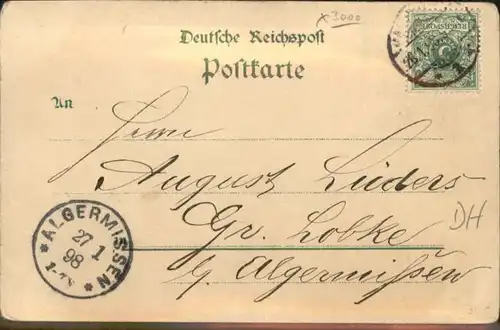 x3000
Deutsche Reichspost
Postkarte
An
Herrn
August Lüders
Gr. Lobke
b/ Algermissen
DH
* ALGERMISSEN *
27 1
98